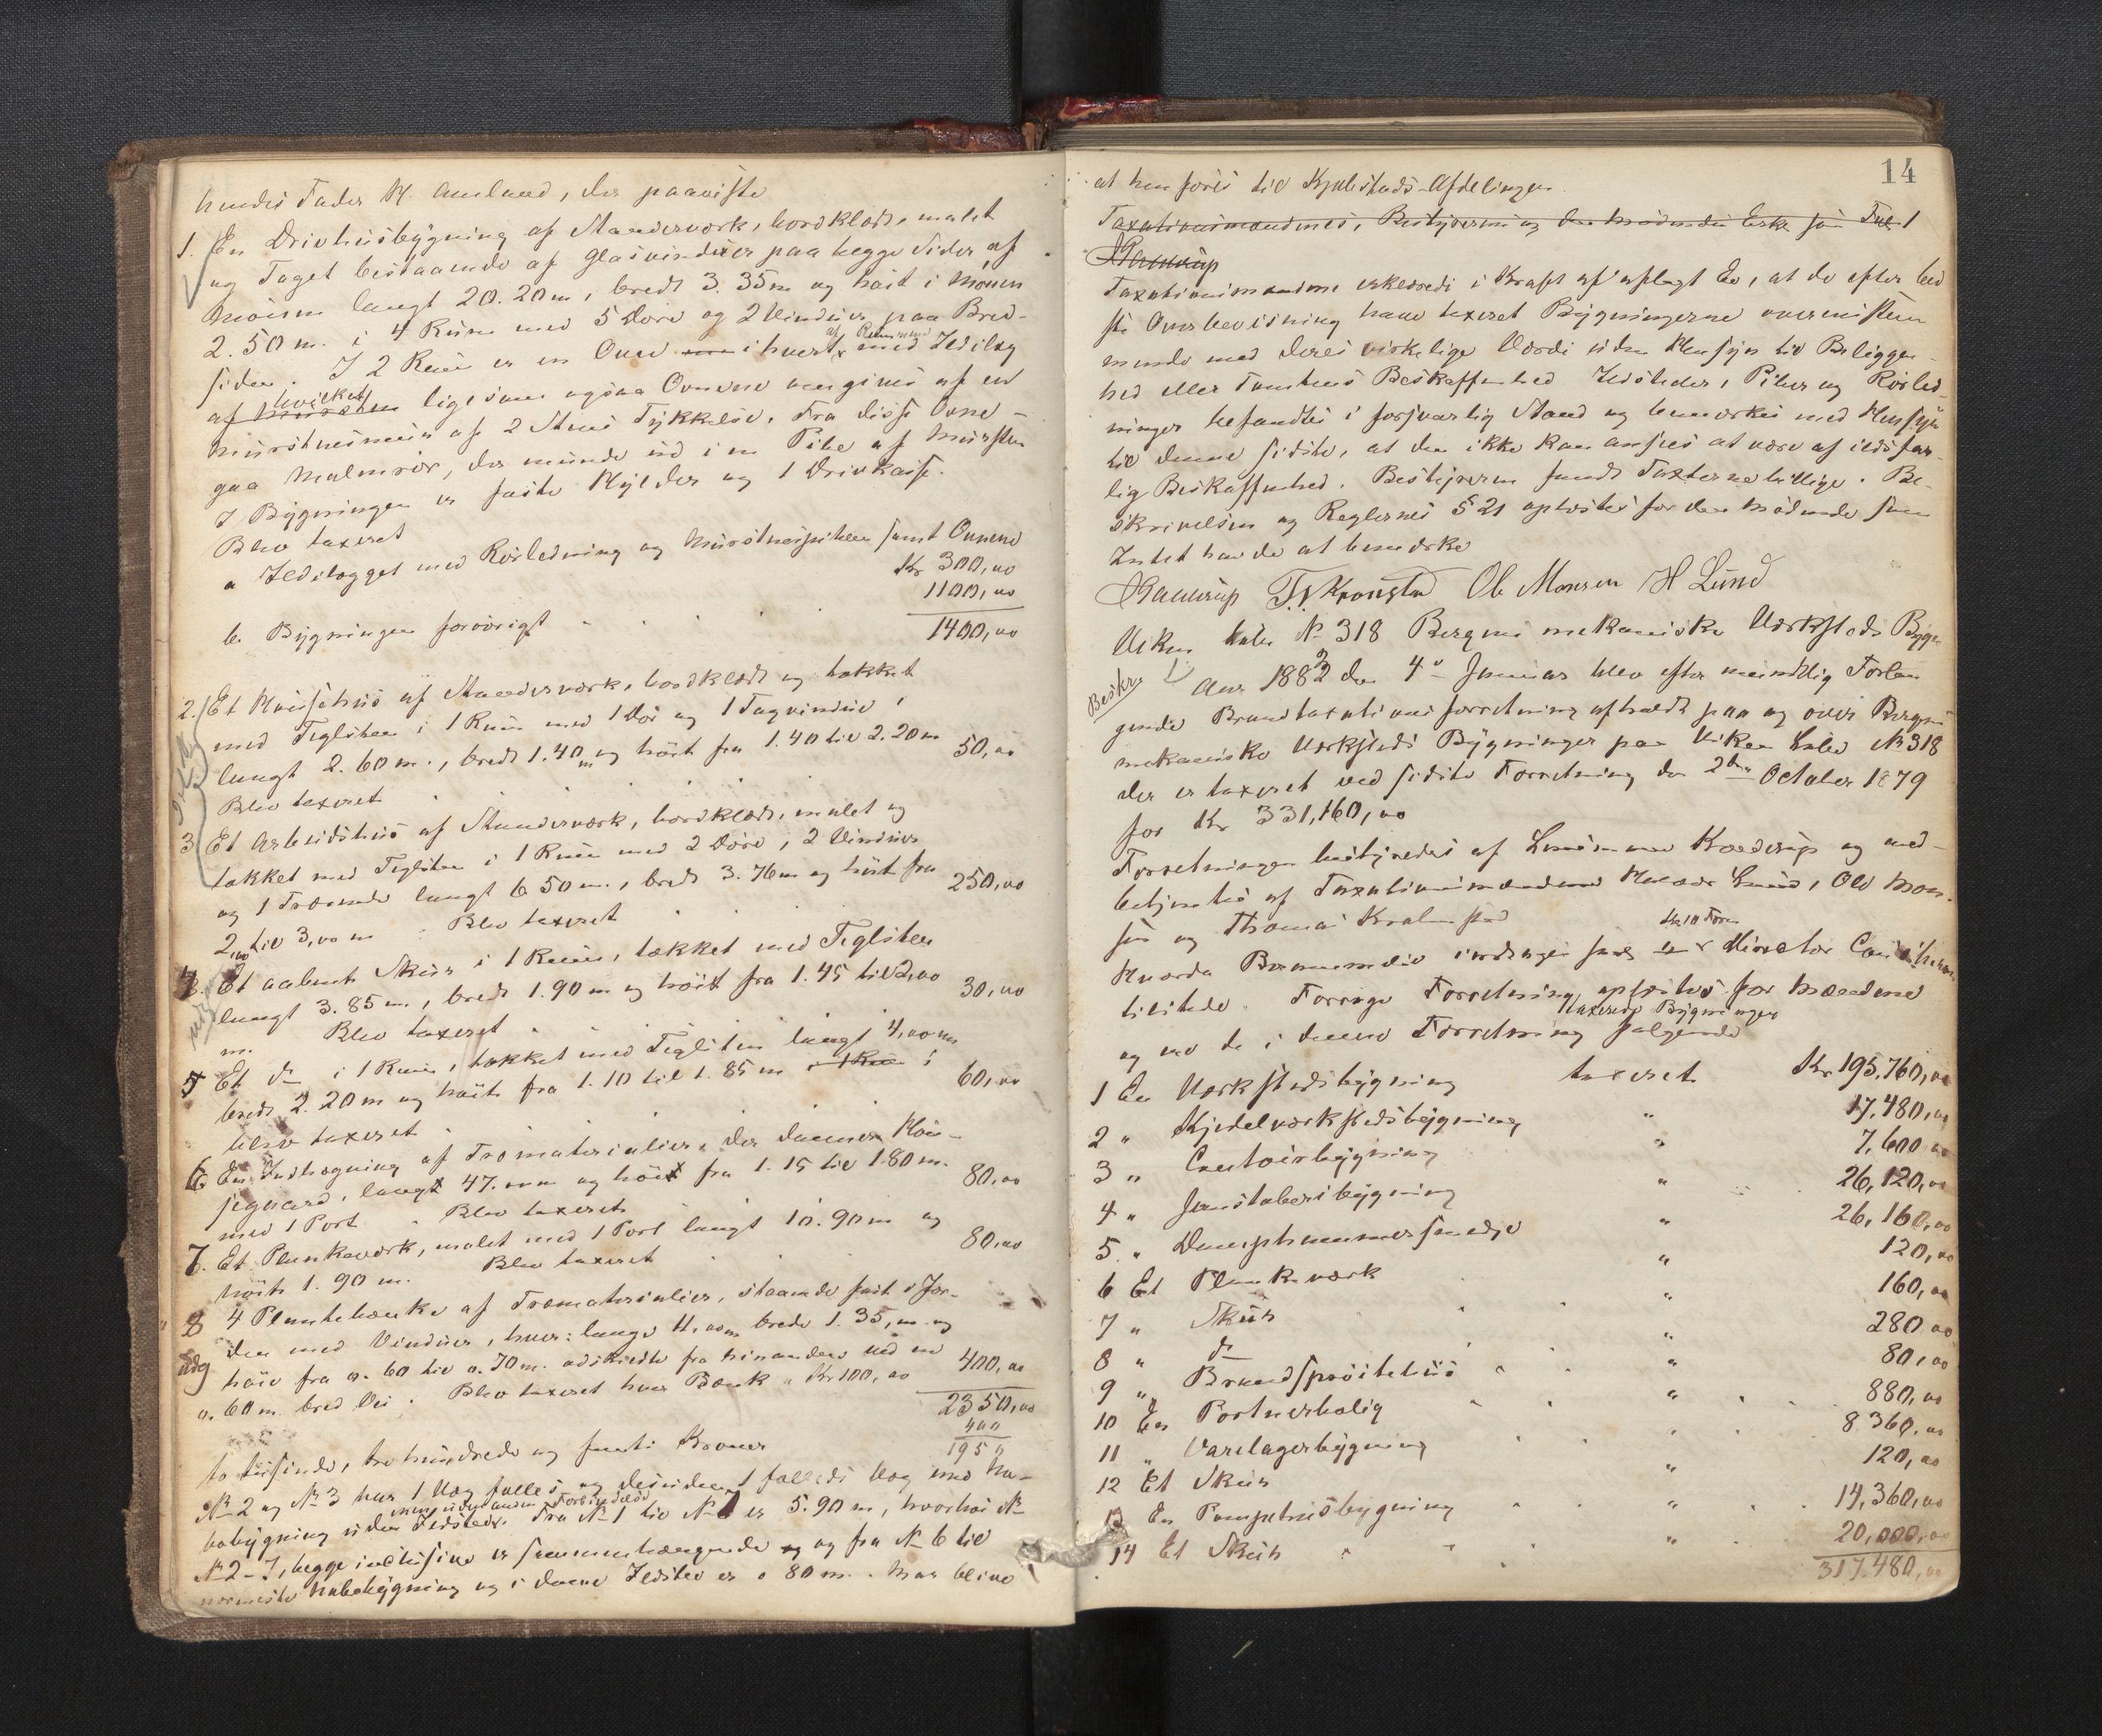 hendes Fader H. Amland, der paaviste
1. En Drivhusbygning af Standerværk, bordklædt, malet
og Taget bestaaende af Glasvinduer paa begge Sider af
Mønen langt 20.20 m, bredt 3.35 m og høit i Mønen
2.50 m. i 4 Rum med 5 Døre og 2 Vinduer paa Bred-
siden. I 2 Rum er en Ovn i hvert af Rummene med Ildlæg
af Mursten hvilket ligesom ogsaa Ovnene omgives af en
Murstensmur af 2 Stens Tykkelse. Fra disse Ovne
gaa Malmrør, der munde ud i en Pibe af Mursten
I Bygningen er faste Hylder og 1 Drivkasse.
Blev taxeret
a Ildlægget med Rørledning og Murstenspiben samt Ovnene
Kr 300,00
b. Bygningen forøvrigt 1100,00
1400,00
2. Et Hønsehus af Standerværk, bordklædt og tækket
med Tagsten i 1 Rum med 1 Dør og 1 Tagvindue
langt 2.60 m., bredt 1.40 m og høit fra 1.40 til 2.20 m
Blev taxeret 50,00
3 Et Arbeidshus af Standerværk, bordklædt, malet og
tækket med Tagsten i 1 Rum med 2 Døre, 2 Vinduer
og 1 langt 6 50 m., bredt 3.76 m og høit fra
2,00 til 3,00 m Blev taxeret 250,00
4. Et aabent Skur i 1 Rum, tækket med Teglsten
langt 3.85 m., bredt 1.90 m og høit fra 1.45 til 2,00
m. Blev taxeret 30,00
5 Et do i 1 Rum, tækket med Teglsten langt 4,00 m
bredt 2.20 m og høit fra 1.10 til 1.85 m i 1 Rum
blev taxeret 60,00
6 En Indhegning af Træmaterialier, der danner Høn-
segaard, langt 47.00 m og høit fra 1.15 til 1.80 m.
med 1 Port Blev taxeret 80,00
7. Et Plankeværk, malet med 1 Port langt 10.90 m og
høit 1.90 m. Blev taxeret 80,00
8 4 Plantebænke af Træmaterialier, staaende fast i Jor-
den med Vinduer, hver: lange 11,00 m brede 1.35, m og
udg
høie fra 0.60 til 0.70 m. adskildte fra hinanden ved en
0.60 m bred Vei. Blev taxeret hver Bænk Kr 100,00 400,00
2350,00
400
1950
to tusinde, tre hundrede og femti Kroner
No 2 og No 3 har 1 Væg fælles og desuden 1 fælleds Væg med Na-
bobygning uden Ildsted. men uden anden Forbindelse Fra No 1 til No er 5.90 m, hvorhos No
No 2-7, begge inclusive er sammenhængende og fra No 6 til
nærmeste Nabobygning og i denne Ildsted er 0 80 m. Maa blive
14
at henføres til Kjøbstads-Afdelingen.
Taxationsmændenes, Bestyreren og den mødende
Taxationsmændene erklærede i Kraft af aflagt Ed, at de efter bed
ste Overbevisning have taxeret Bygningerne overensstem
mende med deres virkelige Værdi uden Hensyn til Beliggen-
hed eller Tomtens Beskaffenhed Ildsteder, Piber og Rørled-
ninger befandtes i forsvarlig Stand og bemærkes med Hensyn
til denne sidste, at den ikke kan ansees at være af ildsfar-
lig Beskaffenhed. Bestyreren fandt Taxterne billige. Be-
skrivelsen og Reglernes § 21 oplæstes for den mødende som
Intet havde at bemærke
T. Kronstad Ole Monsen H Lund
Viken No 318 Bergens mekaniske Værksteds Bygn
Beskr.
Aar 1882 den 4de Januar blev efter mundtlig Forlan
gende Brandtaxationsforretning afholdt paa og over Bergens
mekaniske Værksteds Bygninger paa Viken No 318
der er taxeret ved sidste Forretning den 2den October 1879
for Kr 331,160,00
Forretningen bestyredes af Lensmand og med-
betjentes af Taxationsmændene Lund, Ole Mon-
sen og Thomas Kronstad
Hvorda
tilstede. Forrige Forretning oplæstes for Mændene
og var de i denne Forretning taxerede Bygninger følgende
1 En Værkstedsbygning taxeret Kr 195,760,00
2 " Kjedelværkstedsbygning " 17,480,00
3 " Contoirbygning " 7,600,00
4 " Jernstøberibygning " 26,120,00
5 " Damphammersmedje " 26,160,00
6 Et Plankeværk " 120,00
7 " Skur " 160,00
8 " do " 280,00
9 " Brandsprøitehus " 80,00
10 En Portnerbolig " 880,00
11 " Varelagerbygning " 8 360,00
12 Et Skur " 120,00
13 En Pumpehusbygning " 14,360,00
14 Et Skur " 20,000,00
317.480,00